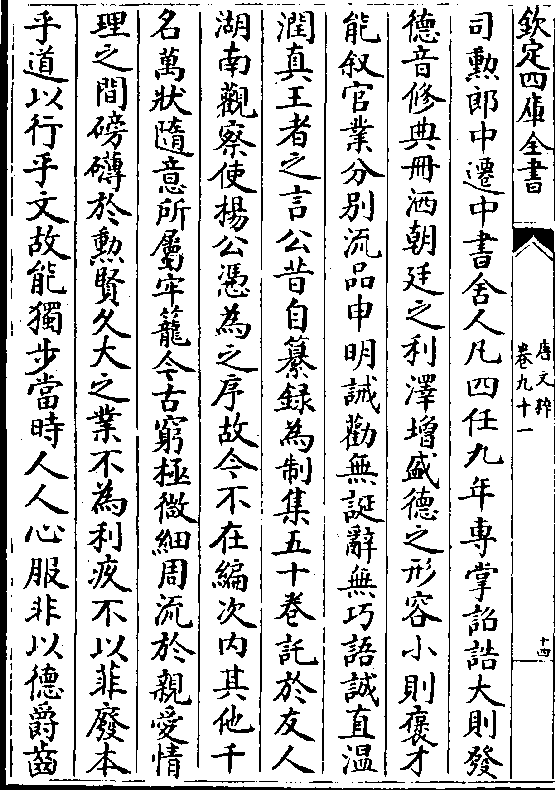 欽定四庫全書
唐文粹
卷九十一
十四
司勲郎中遷中書舍人凡四任九年專掌詔誥大則發
德音修典冊洒朝廷之利澤增盛德之形容小則褒才
能叙官業分别流品申明誡勸無誕辭無巧語誠直温
潤真王者之言公昔自纂録為制集五十卷託於友人
湖南觀察使揚公憑為之序故今不在編次内其他千
名萬狀隨意所屬牢籠今古窮極微細周流於親愛情
理之間磅礴於勲賢久大之業不為利疚不以菲廢本
乎道以行乎文故能獨步當時人人心服非以德爵齒